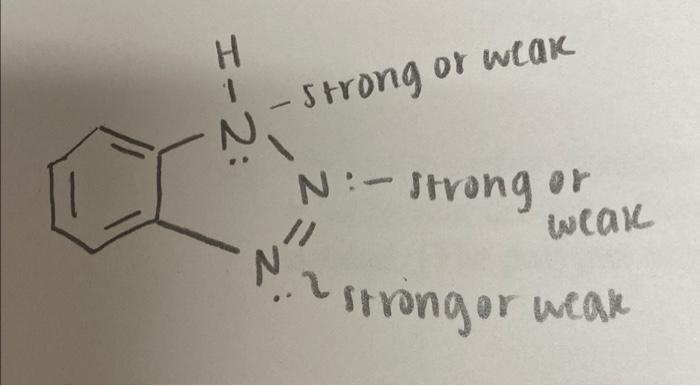 H
N: - strong or weak
N: - strong or
weak
N: strong or weak